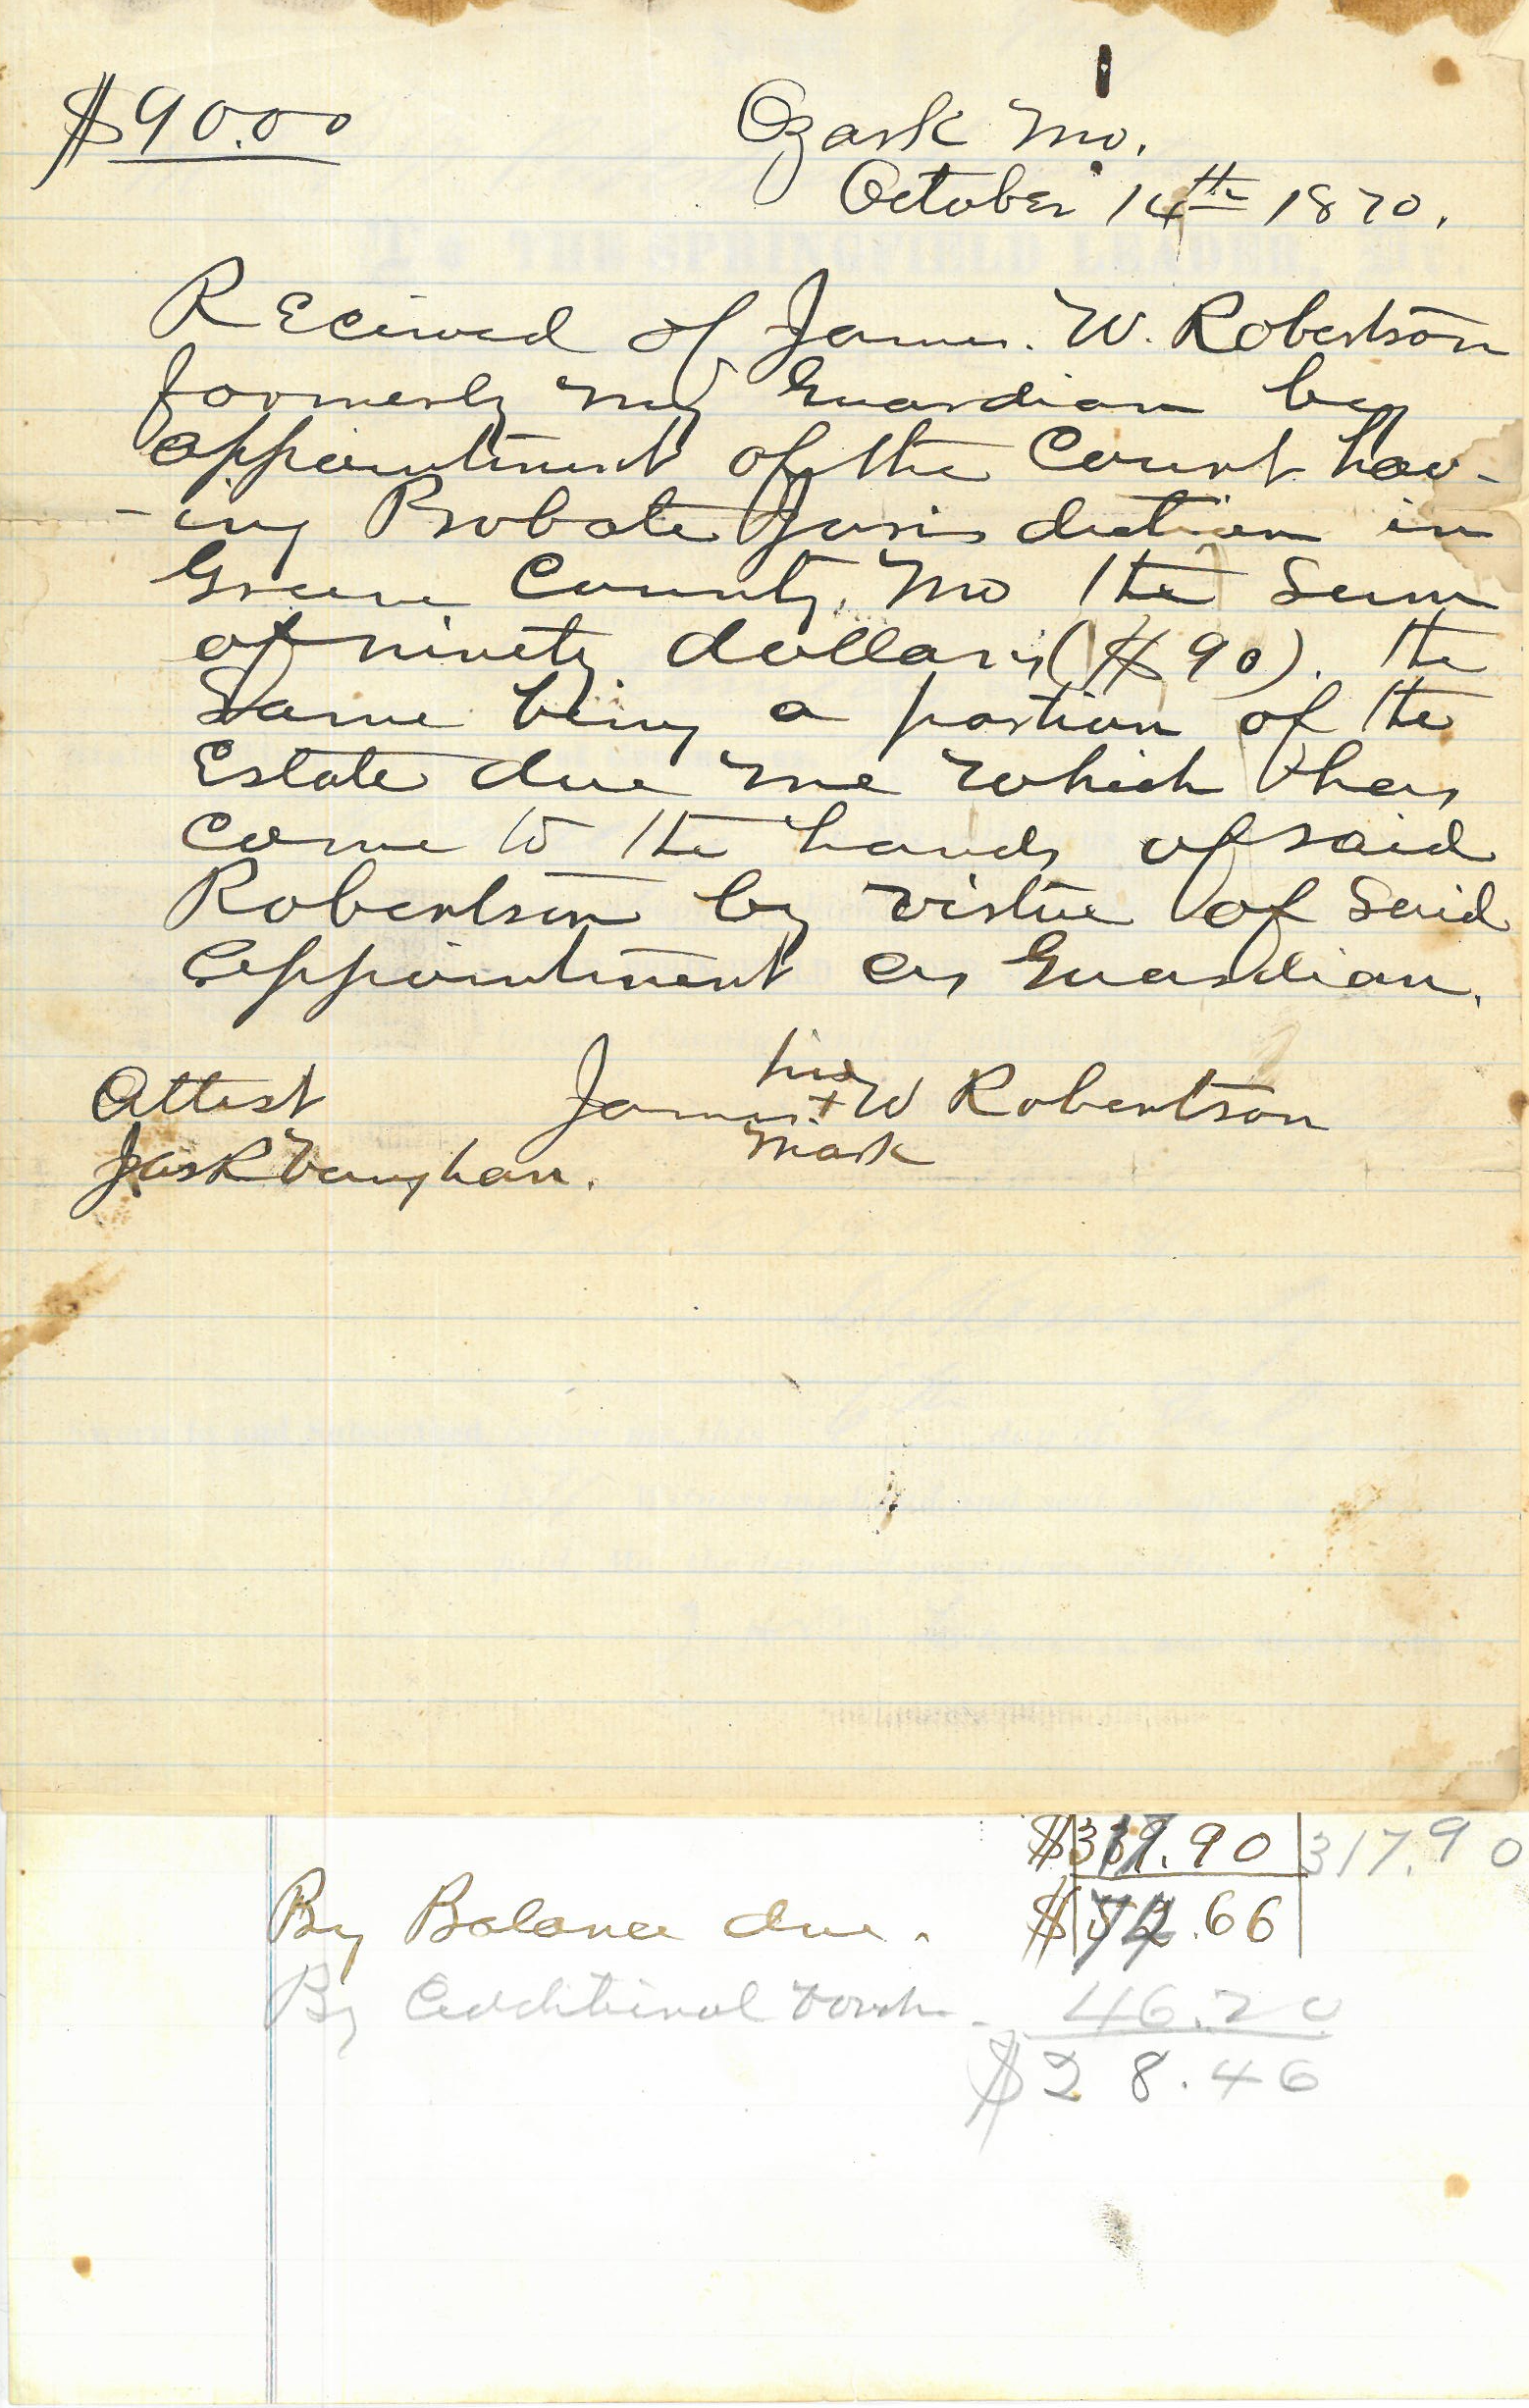 $90.00
Ozark Mo.
October 14th 1870.
Recived of James. W. Robertson
formerly my Guardian by
appointment of the Court hav-
-ing Probate Jurisdiction in
Greene County, Mo the Sum
of ninety dollars ($90). the
Same being a portion of the
Estate due me which has
come to the hands of said
Robertson by virtue of Said
appointment as Guardian.
his
Attest James + W Robertson
mark
Jas R Vaughan.
$317.90 317.90
By Balance due. $74.66
By Additional vouch. 46.20
$28.46